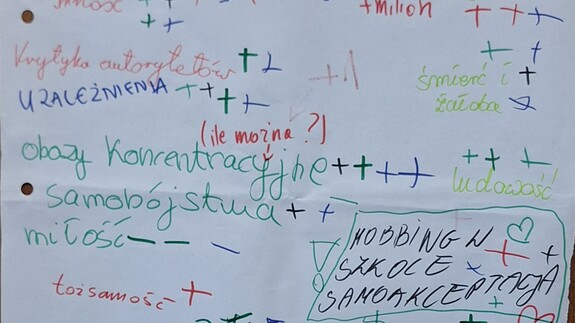 +milion
Krytyka autorytetów
+1
śmierć i
żałoba
UZALEŻNIENIA
(ile można?)
obozy koncentracyjne
ludowość
samobójstwa
miłość
MOBBING W
SZKOLE
SAMOAKCEPTACJA
tożsamość